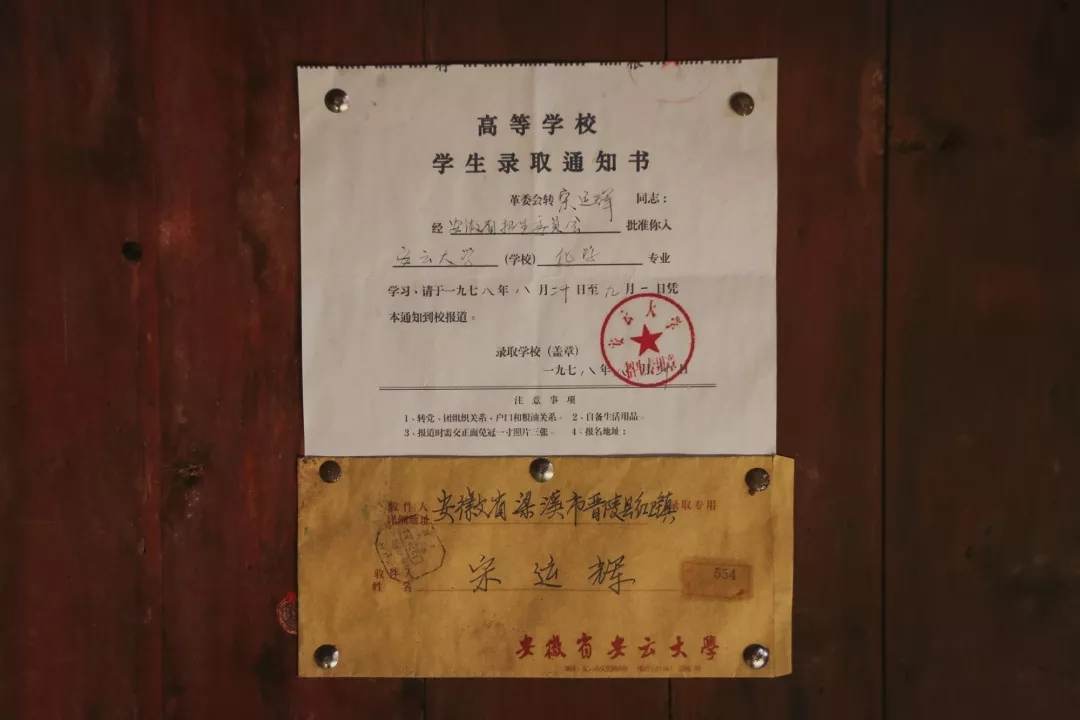 高等学校
学生录取通知书
革委会转宋运辉 同志：
经 安徽省招生委员会 批准你入
安云大学 (学校) 化学 专业
学习，请于一九七八年八月二十日至九月一日凭
本通知到校报道。
安云大学
招生专用章
录取学校（盖章）
一九七八年 月 日
注意事项
1、转党、团组织关系，户口和粮油关系。 2、自备生活用品。
3、报道时需交正面免冠一寸照片三张。 4、报名地址：
收件人 安徽省梁溪市晋陵县红 镇 录取专用
详细地址
收件人 宋运辉
姓名
554
安徽省安云大学